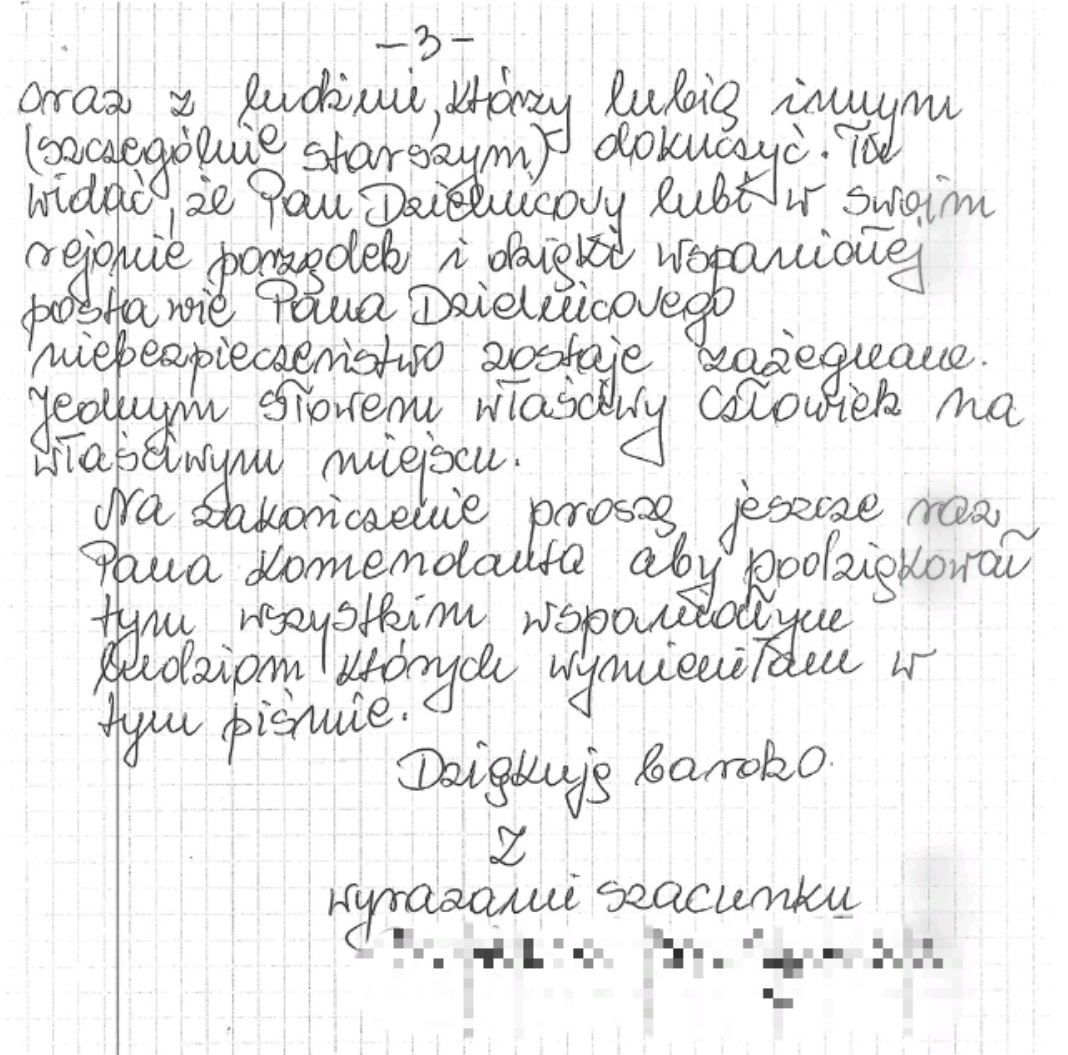 -3-
oraz z ludźmi, którzy lubią innym
(szczególnie starszym) dokuczyć. Tu
widać, że Pan Dzielnicowy lubi w swoim
rejonie porządek i dzięki wspaniałej
postawie Pana Dzielnicowego
niebezpieczeństwo zostaje zażegnane.
Jednym słowem właściwy człowiek na
właściwym miejscu.
Na zakończenie proszę jeszcze raz
Pana Komendanta aby podziękował
tym wszystkim wspaniałym
ludziom których wymieniłam w
tym piśmie.
Dziękuję bardzo.
Z
wyrazami szacunku